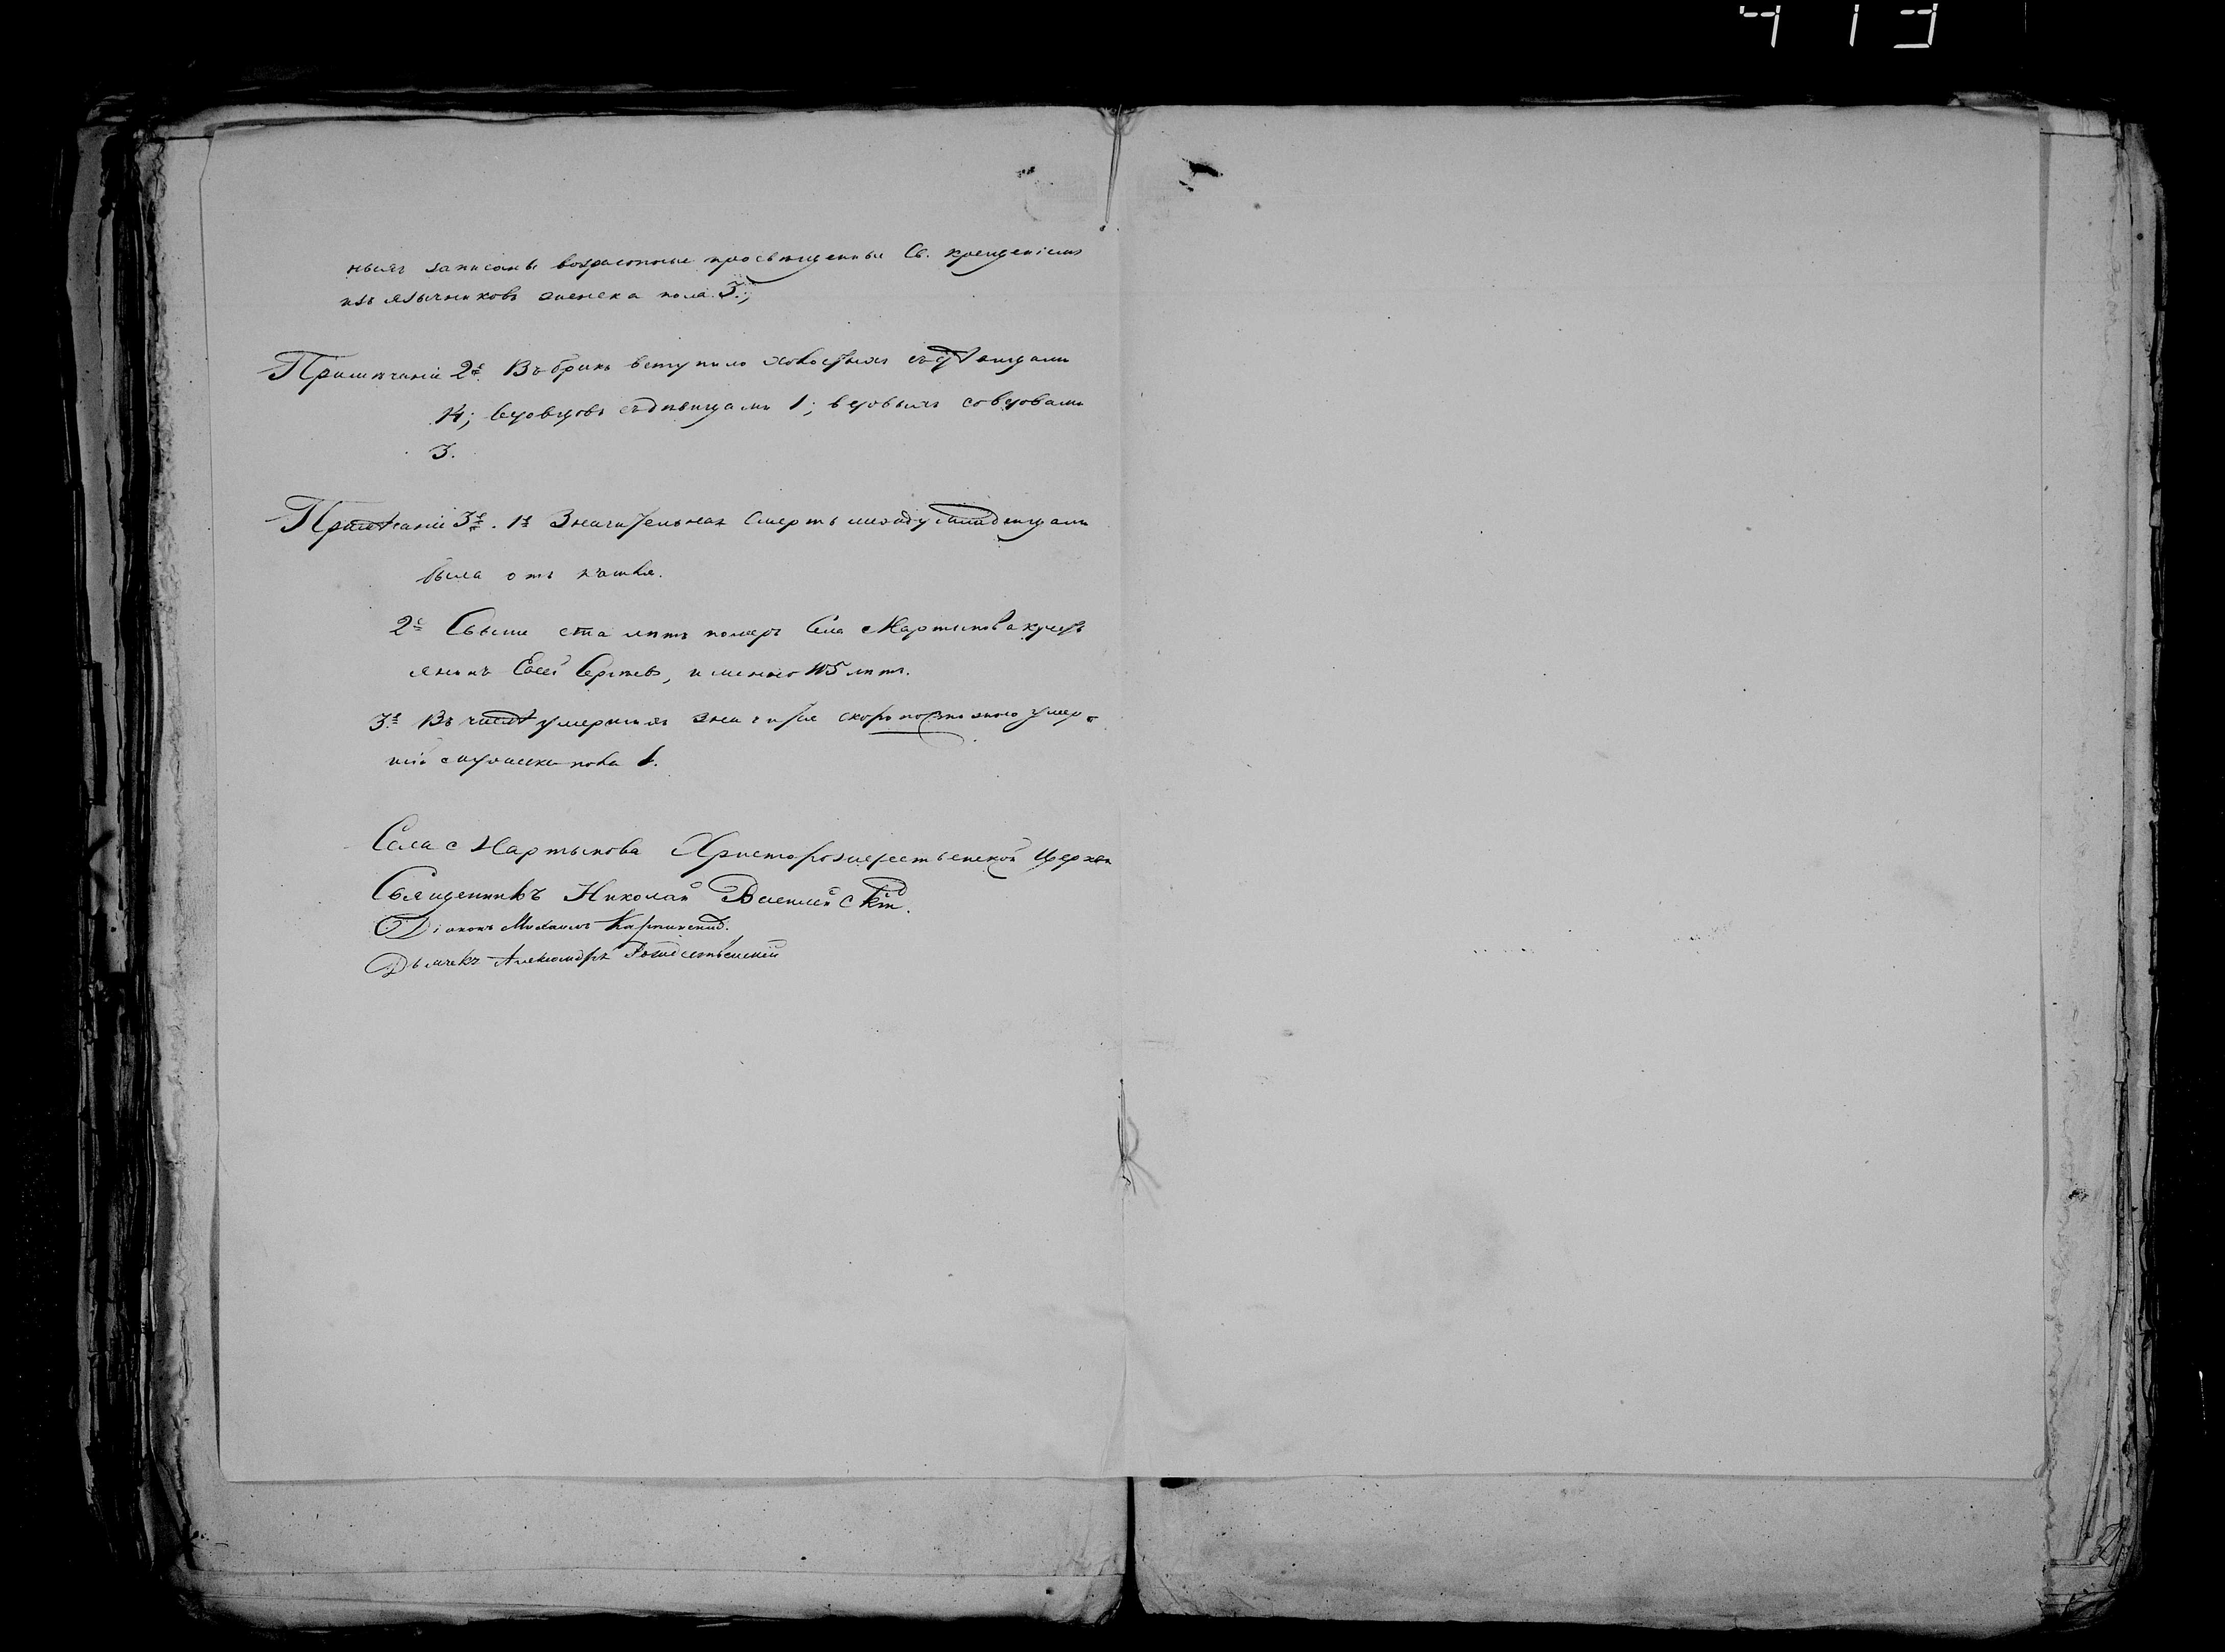 413
ныхъ записаны возрастные просвѣщенные Св. крещеніемъ
изъ язычниковъ женска пола 3.;
Примѣчаніе 2е. Въ бракъ вступило холостыхъ съ дѣвицами
14; вдовцовъ съ дѣвицами 1; вдовыхъ со вдовами
3.
Примѣчаніе 3е. 1е Значительная смерть между младенцами
была отъ кашля.
2е Свыше ста лѣтъ померъ села Мартынова кресть
янинъ Евсей Сергѣевъ, именно 105 лѣтъ.
3е Въ числѣ умершихъ значится скоропостижно умер
шій мужеска пола 1.
Села Мартынова Христорождественской Церкви
Священникъ Николай
Діаконъ Михаилъ Карпинскій.
Дьячекъ Александръ Рождественскій